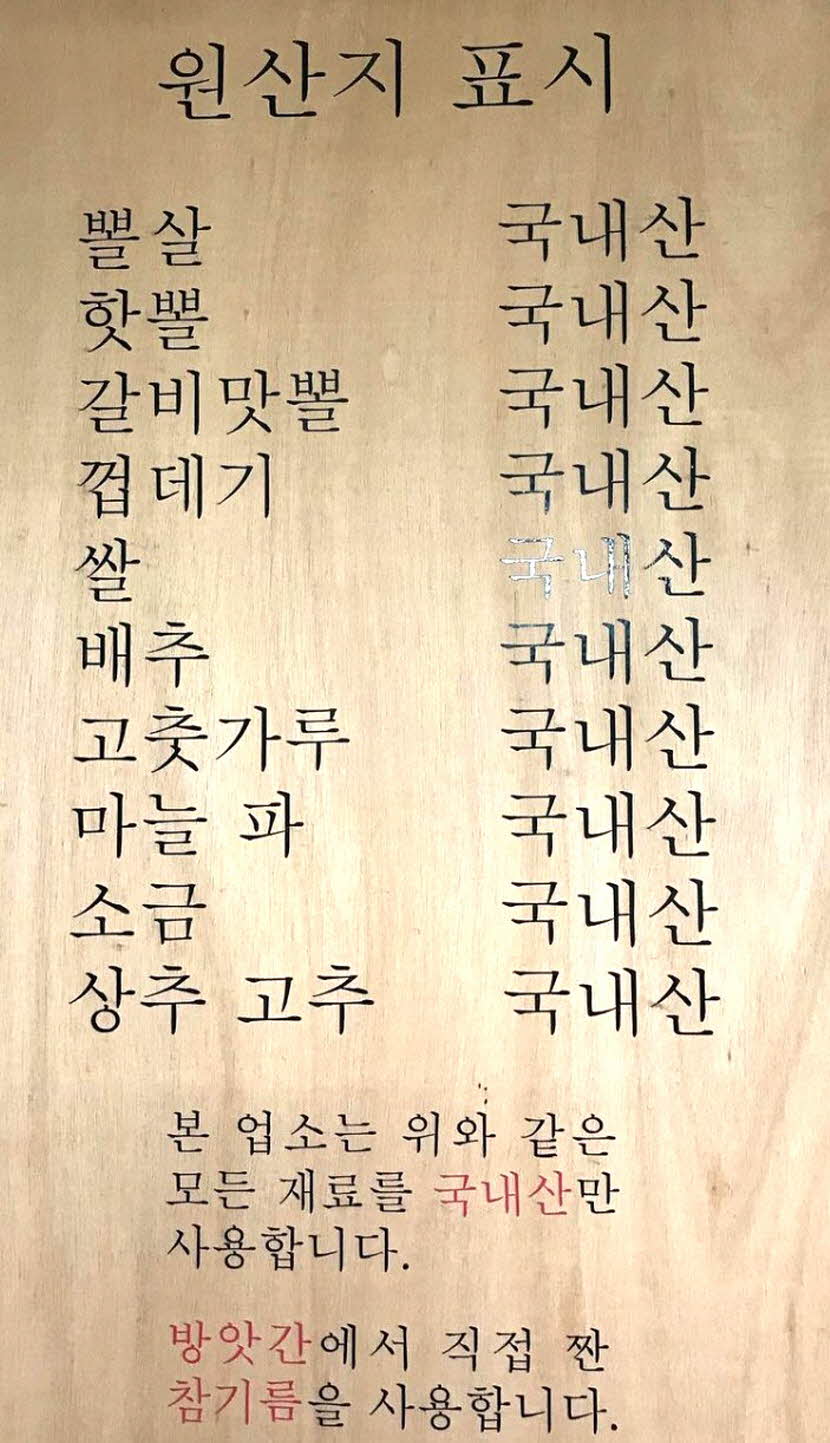 원산지 표시
뽈살 국내산
핫뽈 국내산
갈비맛뽈 국내산
껍데기 국내산
쌀 국내산
배추 국내산
고춧가루 국내산
마늘 파 국내산
소금 국내산
상추 고추 국내산
본 업소는 위와 같은
모든 재료를 국내산만
사용합니다.
방앗간에서 직접 짠
참기름을 사용합니다.